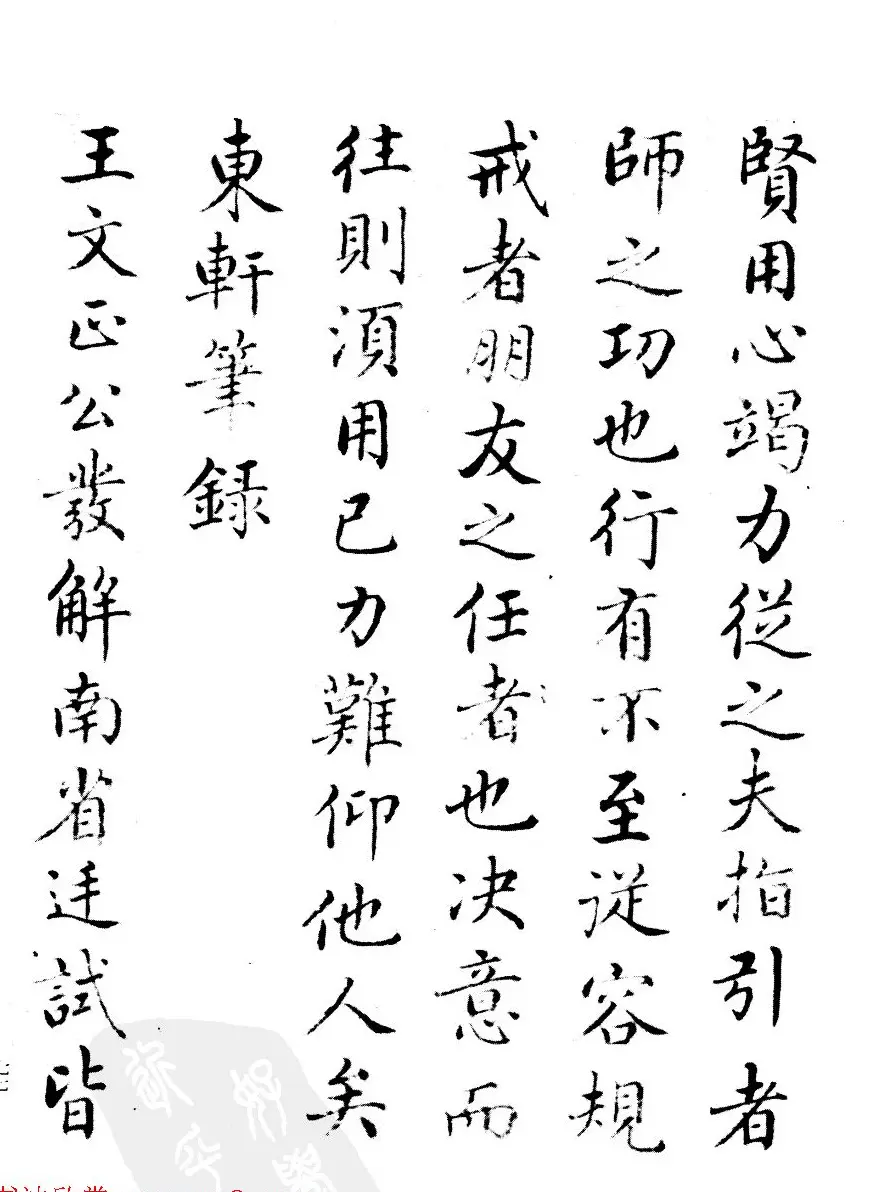 賢用心竭力從之夫指引者
師之功也行有不至從容規
戒者朋友之任者也决意而
往則須用已力難仰他人矣
東軒筆録
王文正公發解南省廷試皆